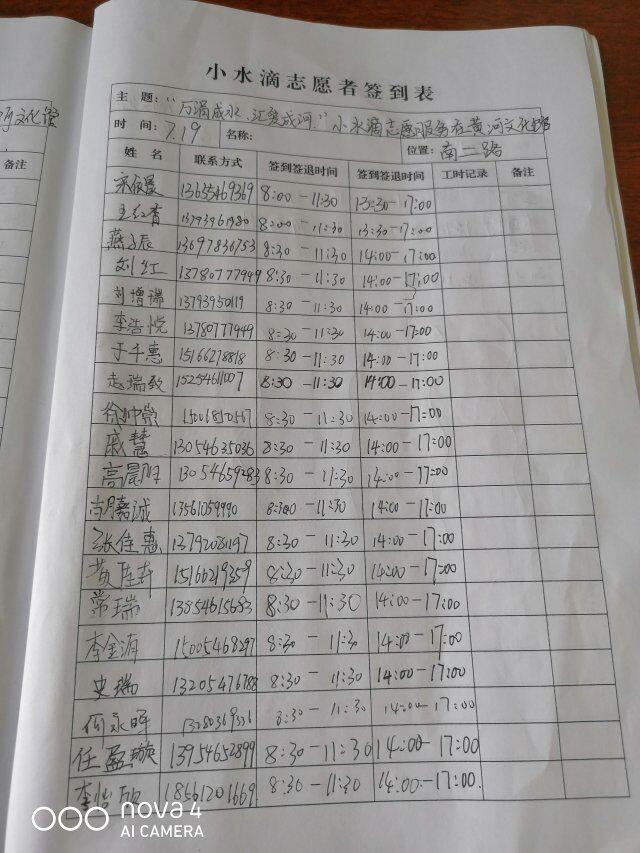 小水滴志愿者签到表
主 题：“万滴成水、汇爱成河”小水滴志愿服务在黄河文化馆
时 间：7.19 名称： 位置：南二路
姓 名 联系方式 签到签退时间 签到签退时间 工时记录 备注
13655469369 8:00-11:30 13:30-17:00
王红香 13793961980 8:00-11:30 13:30-17:00
燕子辰 13697836753 8:30-11:30 14:00-17:00
刘红 13780777949 8:30-11:30 14:00-17:00
刘增瑞 13793950119 8:30-11:30 14:00-17:00
李浩悦 13780777949 8:30-11:30 14:00-17:00
于千惠 15166278818 8:30-11:30 14:00-17:00
赵瑞致 15254611007 8:30-11:30 14:00-17:00
徐帅崇 8:30-11:30 14:00-17:00
戚慧 13054635036 8:30-11:30 14:00-17:00
高晨阳 13054659283 8:30-11:30 14:00-17:00
胡嘉诚 13561059990 8:30-11:30 14:00-17:00
张佳惠 13792081197 8:30-11:30 14:00-17:00
15166219359 8:30-11:30 14:00-17:00
常瑞 13854615683 8:30-11:30 14:00-17:00
李金消 15005468297 8:30-11:3 14:00-17:00
史瑞 13205476788 8:30-11:30 14:00-17:00
何永晖 13280369326 8:30-11:30 14:00-17:00
任盈璇 13954652899 8:30-11:30 14:00-17:00
李怡欣 18561201669 8:30-11:30 14:00-17:00
文化馆
备注
nova 4
AI CAMERA